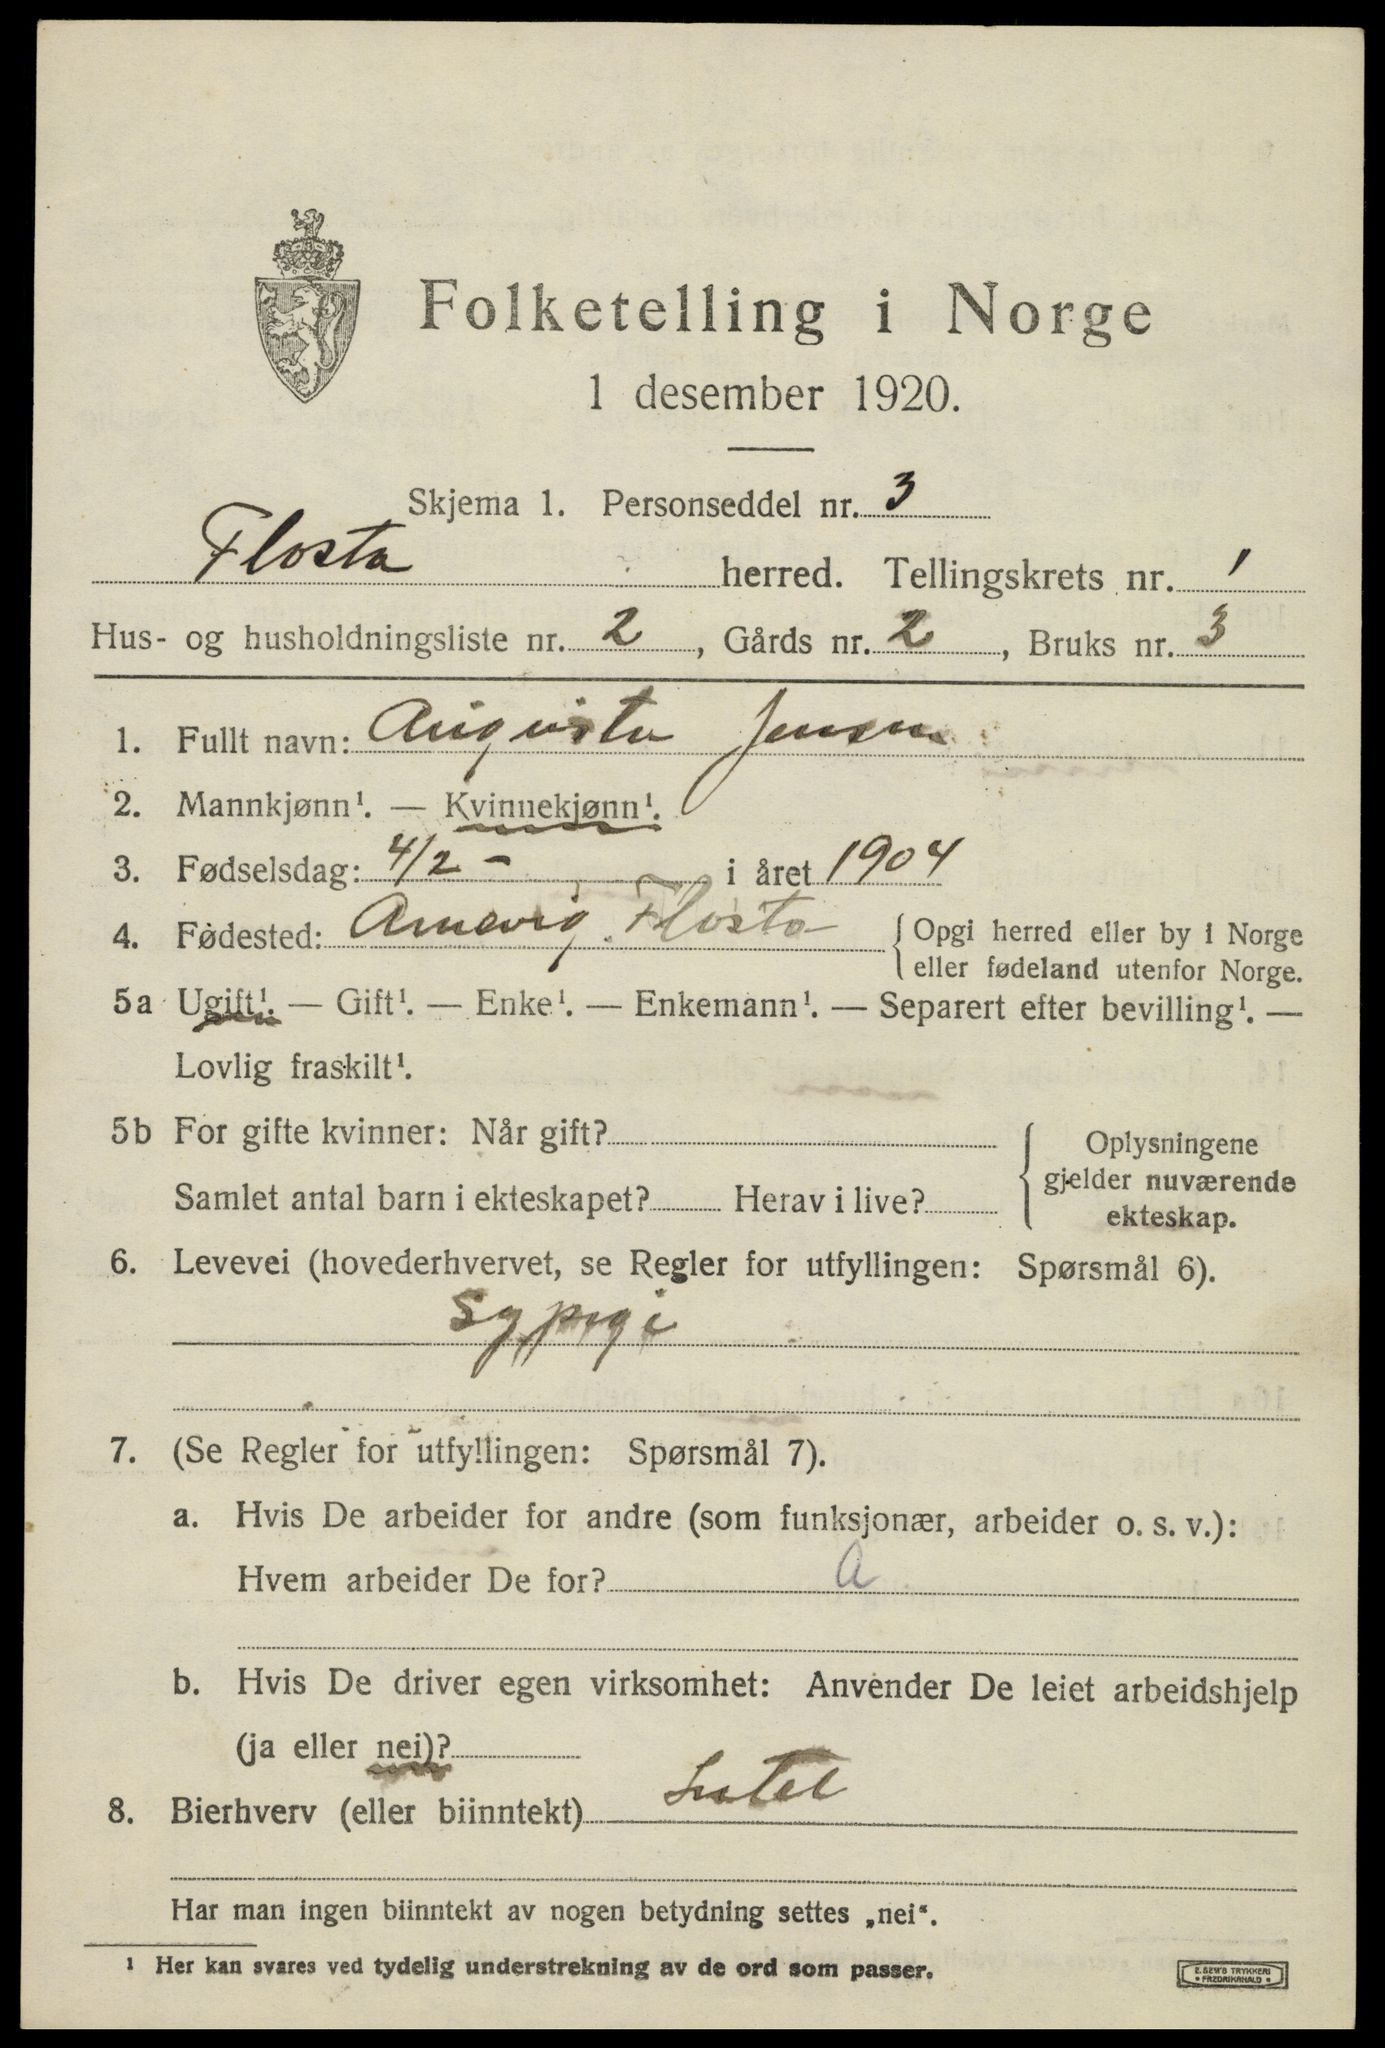 Folketelling i Norge
1 desember 1920.
Skjema 1. Personseddel nr. 3
Flosta herred. Tellingskrets nr. 1
Hus- og husholdningsliste nr. 2, Gårds nr. 2, Bruks nr. 3
1. Fullt navn: Augusta Jensen
2. Mannkjønn¹. — Kvinnekjønn¹.
3. Fødselsdag: 4/2 - i året 1904
4. Fødested: Arnevig Flosta { Opgi herred eller by i Norge
eller fødeland utenfor Norge.
5a Ugift¹. — Gift¹. — Enke¹. — Enkemann¹. — Separert efter bevilling¹. —
Lovlig fraskilt¹.
5b For gifte kvinner: Når gift? { Oplysningene
gjelder nuværende
Samlet antal barn i ekteskapet? Herav i live?
ekteskap.
6. Levevei (hovederhvervet, se Regler for utfyllingen: Spørsmål 6).
Sypige
7. (Se Regler for utfyllingen: Spørsmål 7).
a. Hvis De arbeider for andre (som funksjonær, arbeider o. s. v.):
Hvem arbeider De for? a
b. Hvis De driver egen virksomhet: Anvender De leiet arbeidshjelp
(ja eller nei)?
8. Bierhverv (eller biinntekt)
Har man ingen biinntekt av nogen betydning settes „nei“.
¹ Her kan svares ved tydelig understrekning av de ord som passer.
E. SEM'S TRYKKERI
• FREDRIKSHALD •